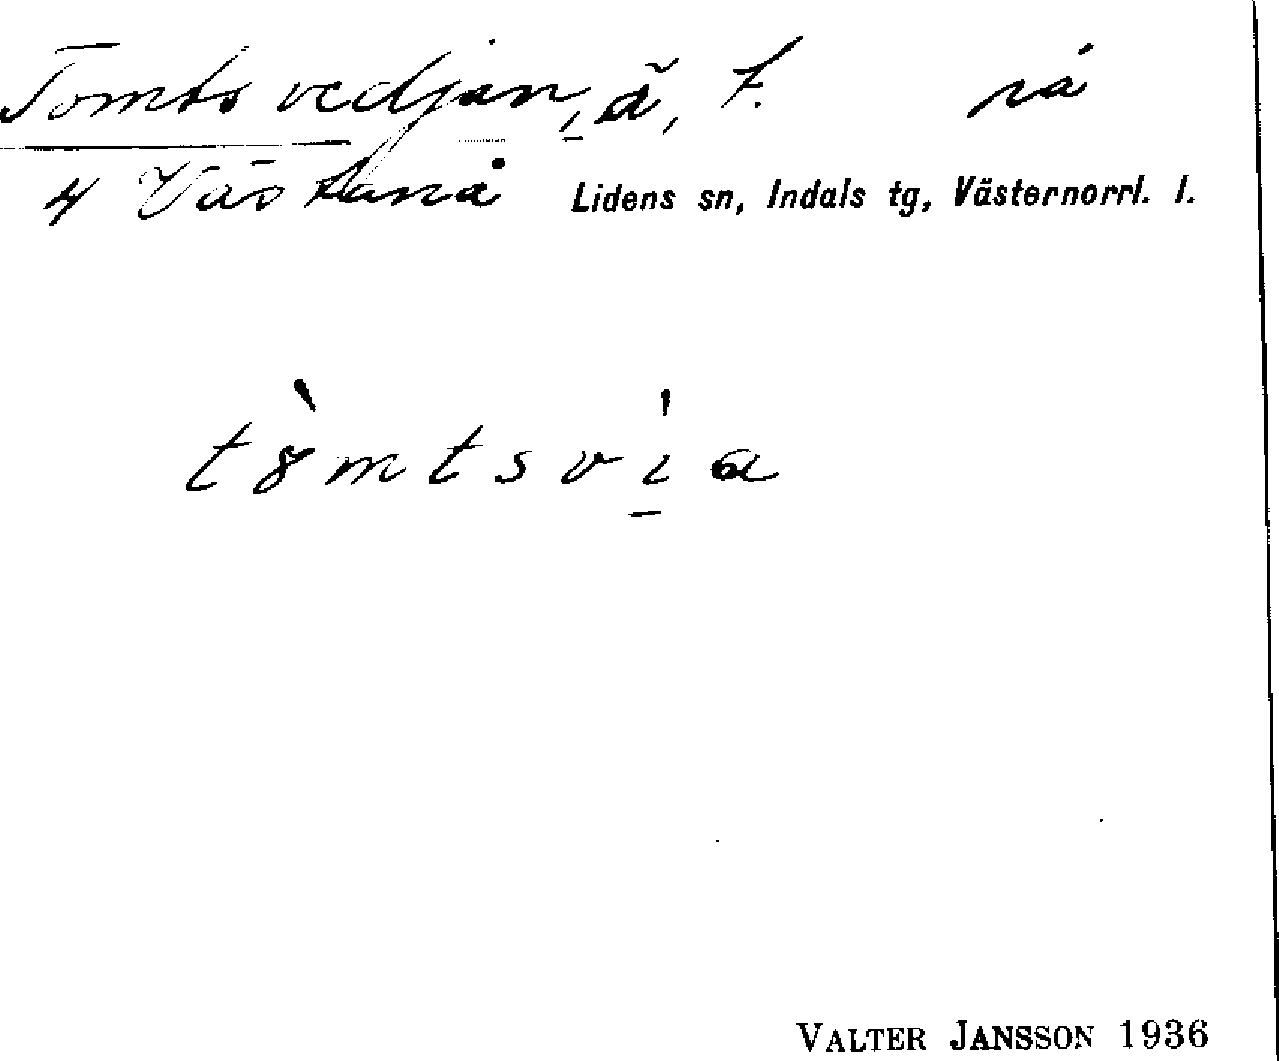 Tomtsvedjan, ã, f. rå
4 Västanå Lidens sn, Indals tg, Västernorrl. l.
tò̀mtsví̱a
VALTER JANSSON 1936